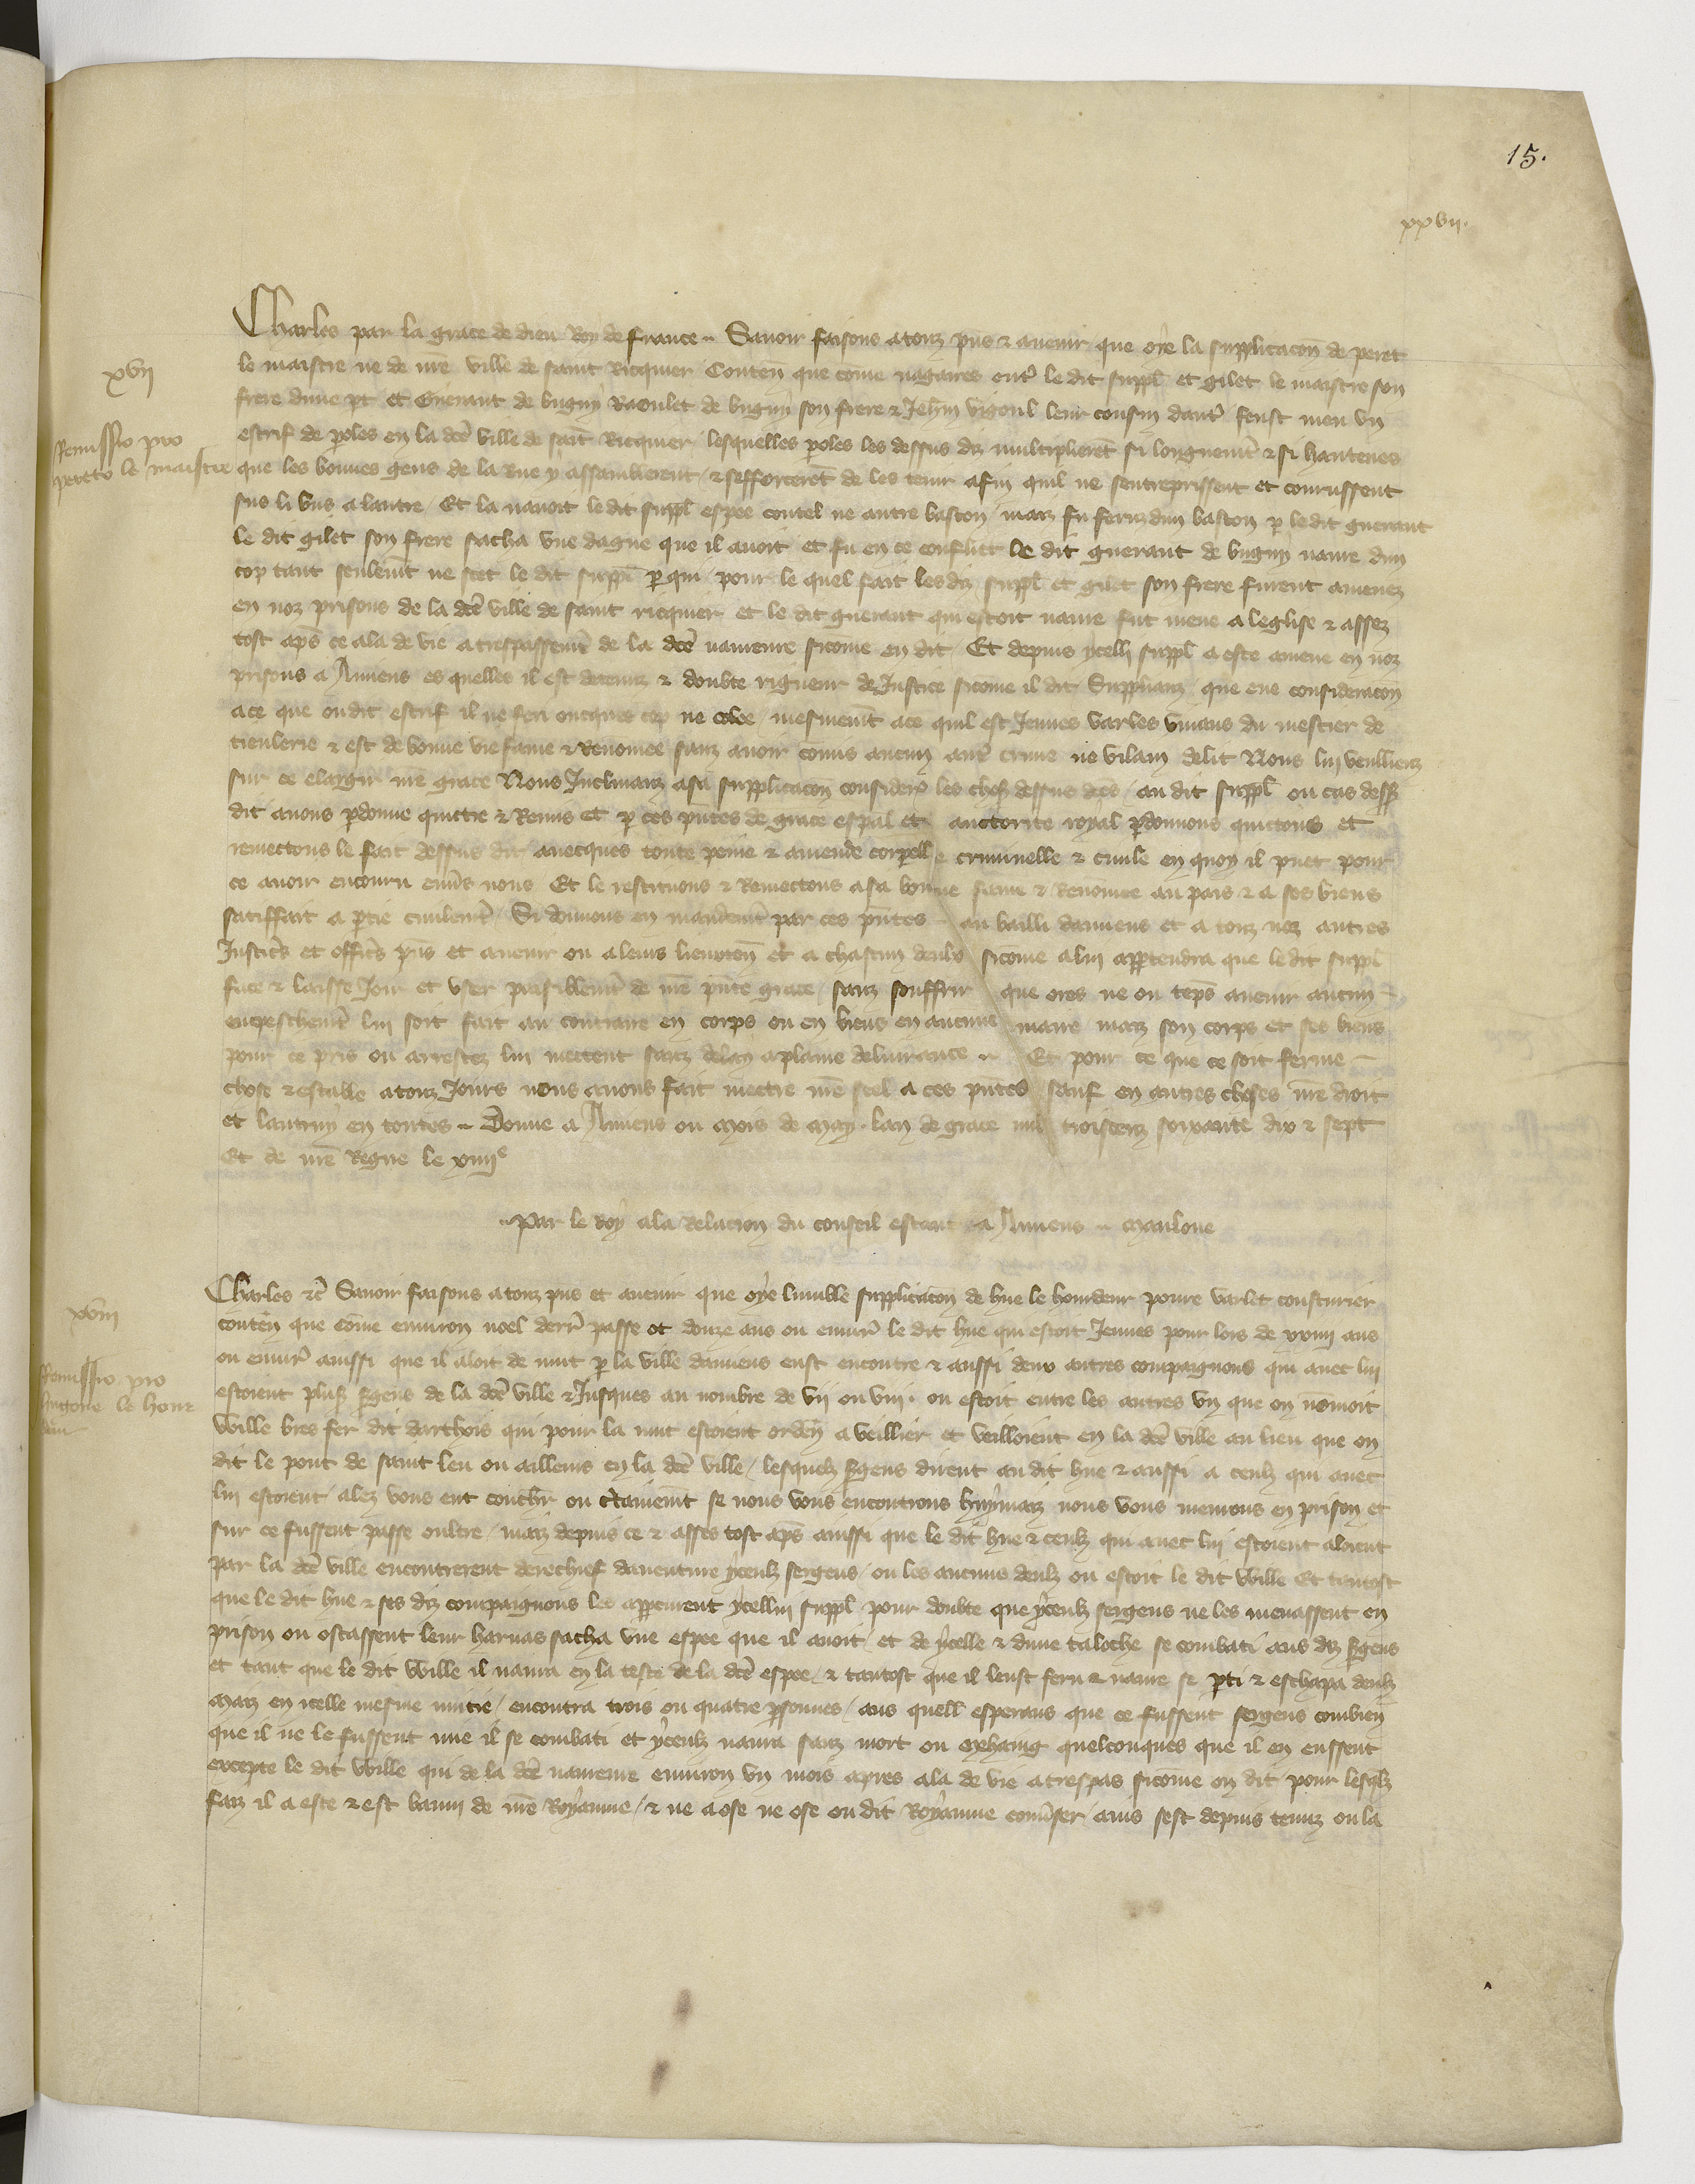 15.
xxvii.
Charles par la grace de dieu Roy de france .. Sauoir faisons a touz pñs & auenir que oye la supplicacoñ de peret
xvii
le maistre ne de nr̃e ville de saint Ricquier Conteñ que cõme nagaires entr̃ le dit suppl̃ et gilet le maistre son
frere dune pt et Guerant de bugny Raoulet de bugny son frere & Jehñ vigoul leur cousin dautr̃ feust meu vn
Remissio pro
pereto le maistre
estrif de p̱oles en la dc̃e ville de saĩt Ricquier lesquelles p̱oles les dessus diz multiplierẽt si longuemt̃ & si hautenes
que les bonnes gens de la rue y assamblerent / & sefforcerẽt de les tenir afin quil ne sentreprissent et courussent
sus li vns a lautre / Et la nauoit le dit suppl̃ espee coutel ne autre baston / maiz fu feruz dun baston p̱ le dit guerant
le dit gilet son frere sacha vne dague que il auoit et fu en ce conflict le dit guerant de bugny naure dun
cop tant seulemt̃ ne scet le dit suppl̃ p̱ qui / pour le quel fait les diz suppl̃ et gilet son frere furent amenez
en noz prisons de la dc̃e ville de saint ricquier et le dit guerant qui estoit naure fut mene a leglise & assez
tost aps̃ ce ala de vie a trespassemt̃ de la dc̃e naureure sicõme en dit / Et depuis ycelli suppl̃ a este amene en noz
prisons a Amiens es quelles il est detenuz & doubte rigueur de Justice sicõme il dit Suppliant / que eue consideracoñ
a ce que ou dit estrif il ne feri oncques cop ne colee / mesmemt̃ a ce quil est Jeunes varles viuans du mestier de
tieulerie & est de bonne vie fame & Renõmee sanz auoir cõmis aucun autr̃ crime ne vilain delit Nous lui veullienz
sur ce elargir nr̃e grace Nous Inclinanz a sa supplicacoñ consideré les choses dessus dc̃es / au dit suppl̃ ou cas dess9
dit auons p̱donne quictie & Remis et p̱ ces pñtes de grace esp̃al et auctorite royal p̱donnons quictons et
remectons le fait dessus dit auecques toute peine & amende corporelle criminelle & ciuile en quoy il puet pour
ce auoir encouru enũs nous / Et le restituons & Remectons a sa bonne fame & Renõmee au pais & a ses biens
satiffait a p̱tie ciuilemt̃ / Si donnons en mandemt̃ par ces pñtes .. au bailli damiens et a touz noz autres
Justicrs̃ et officrs̃ pñs et auenir ou a leurs lieuxteñ et a chascun deulx sicõme a lui app̱tendra que le dit suppl̃
face & laisse Joir et vser paisiblemt̃ de nr̃e pñte grace / sanz souffrir que ores ne ou teps̃ auenir aucun
empeschemt̃ lui soit fait au contraire en corps ou en biens en aucune maniere maiz son corps et ses biens
pour ce pris ou arrestez lui mectent sanz delay a plaine deliurance .. Et pour ce que ce soit ferme
chose & estable a touz Jours nous auons fait mectre nr̃e seel a ces pñtes sauf en autres choses nr̃e droit
et lautruy en toutes .. Donne a Amiens ou mois de May . lan de grace mil troiscenz soixante dix & sept
Et de nr̃e Regne le xiiiie
.. Par le Roy a la Relacion du conseil estant a Amiens .. Mauloue
Charles &c̃ Sauoir faisons a touz pñs et auenir que oye lumble supplicacoñ de hue le hourdeur poure varlet cousturier
xviii
conteñ que cõme enuiron noel derr̃ passe ot douze ans ou enuir̃ le dit hue qui estoit Jeunes pour lors de xviii ans
ou enuir̃ ainssi que il aloit de nuit p̱ la ville damiens eust encontre & aussi deux autres compaignons qui auec lui
Remissio pro
hugone le hour
deur
estoient plus9 sergens de la dc̃e ville & Jusques au nombre de vii ou viii . ou estoit entre les autres vn que on nõmoit
Wille bres fer dit darthois qui pour la nuit estoient ordeñ a veillier et veilloient en la dc̃e ville au lieu que on
dit le pont de saint leu ou ailleurs en la dc̃e ville / lesquelz sergens dirent au dit hue & aussi a ceulz qui auec
lui estoient / alez vous ent couchr̃ ou c̃tainemt̃ se nous vous encontrons huymaiz nous vous menrons en prison et
sur ce fussent passe oultre / maiz depuis ce & asses tost aps̃ ainssi que le dit hue & ceulz qui auec lui estoient aloient
par la dc̃e ville encontrerent derechief dauenture yceulz sergens / ou les aucuns deulz ou estoit le dit Wille Et tantost
que le dit hue & ses diz compaignons les app̱ceurent ycellui suppl̃ pour doubte que yceulz sergens ne les menassent en
prison ou ostassent leur harnas sacha vne espee que il auoit / et de ycelle & dune taloche se combati aus diz sergens
et tant que le dit Wille il naura en la teste de la dc̃e espee / & tantost que il leust feru & naure se p̱ti & eschapa deulz
Maiz en icelle mesme nuitie / encontra trois ou quatre p̱sonnes / aus quell̃ esperans que ce fussent sergens combien
que il ne le fussent mie il se combati et yceulz naura sanz mort ou mehaing quelconques que il en eussent
excepte le dit Wille qui de la dc̃e naureure enuiron vn mois apres ala de vie a trespas sicõme on dit pour lesqlz
faiz il a este & est banni de nr̃e Royaume / & ne a ose ne ose ou dit Royaume conũser ains sest depuis tenuz ou la